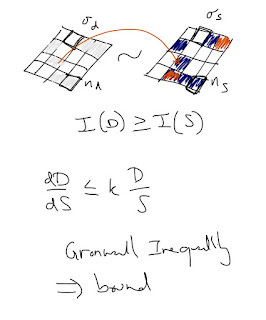 σ_d σ_s
~
n_d n_s
I(D) ≥ I(S)
dD/dS ≤ k D/S
Gronwall Inequality
⇒ bound